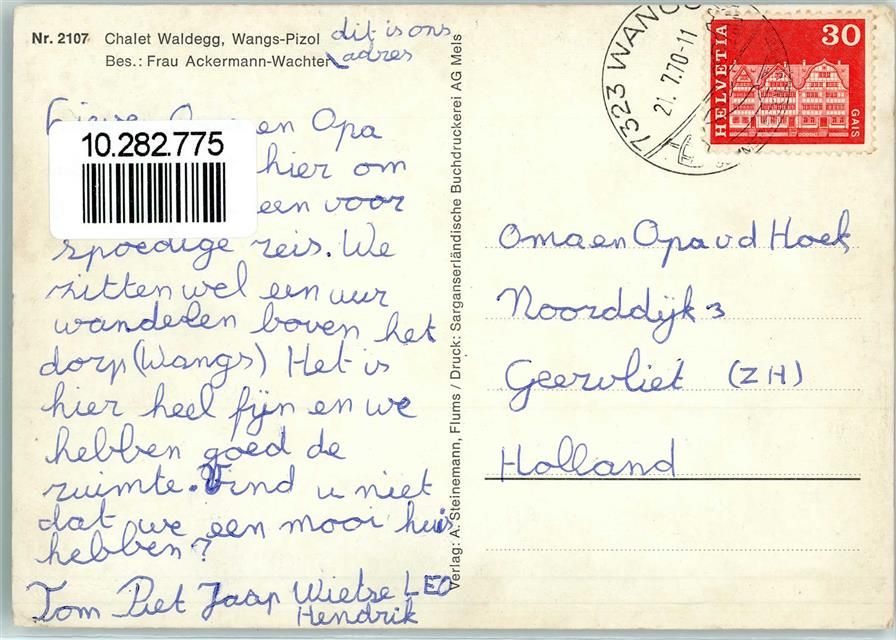 Nr. 2107 Chalet Waldegg, Wangs-Pizol
Bes.: Frau Ackermann-Wachter
dit is ons
adres
en Opa
10.282.775
hier om
een voor
spoedige reis. We
zitten wel een uur
wandelen boven het
dorp (Wangs) Het is
hier heel fijn en we
hebben goed de
ruimte. Vind u niet
dat we een mooi huis
hebben?
Tom Piet Jaap Wietse LEO
Hendrik
Verlag: A. Steinemann, Flums / Druck: Sarganserländische Buchdruckerei AG Mels
7323 WANGS
21.7.70-11
HELVETIA
30
GAIS
Oma en Opa v d Hoek
Noorddijk 3
Geervliet (ZH)
Holland